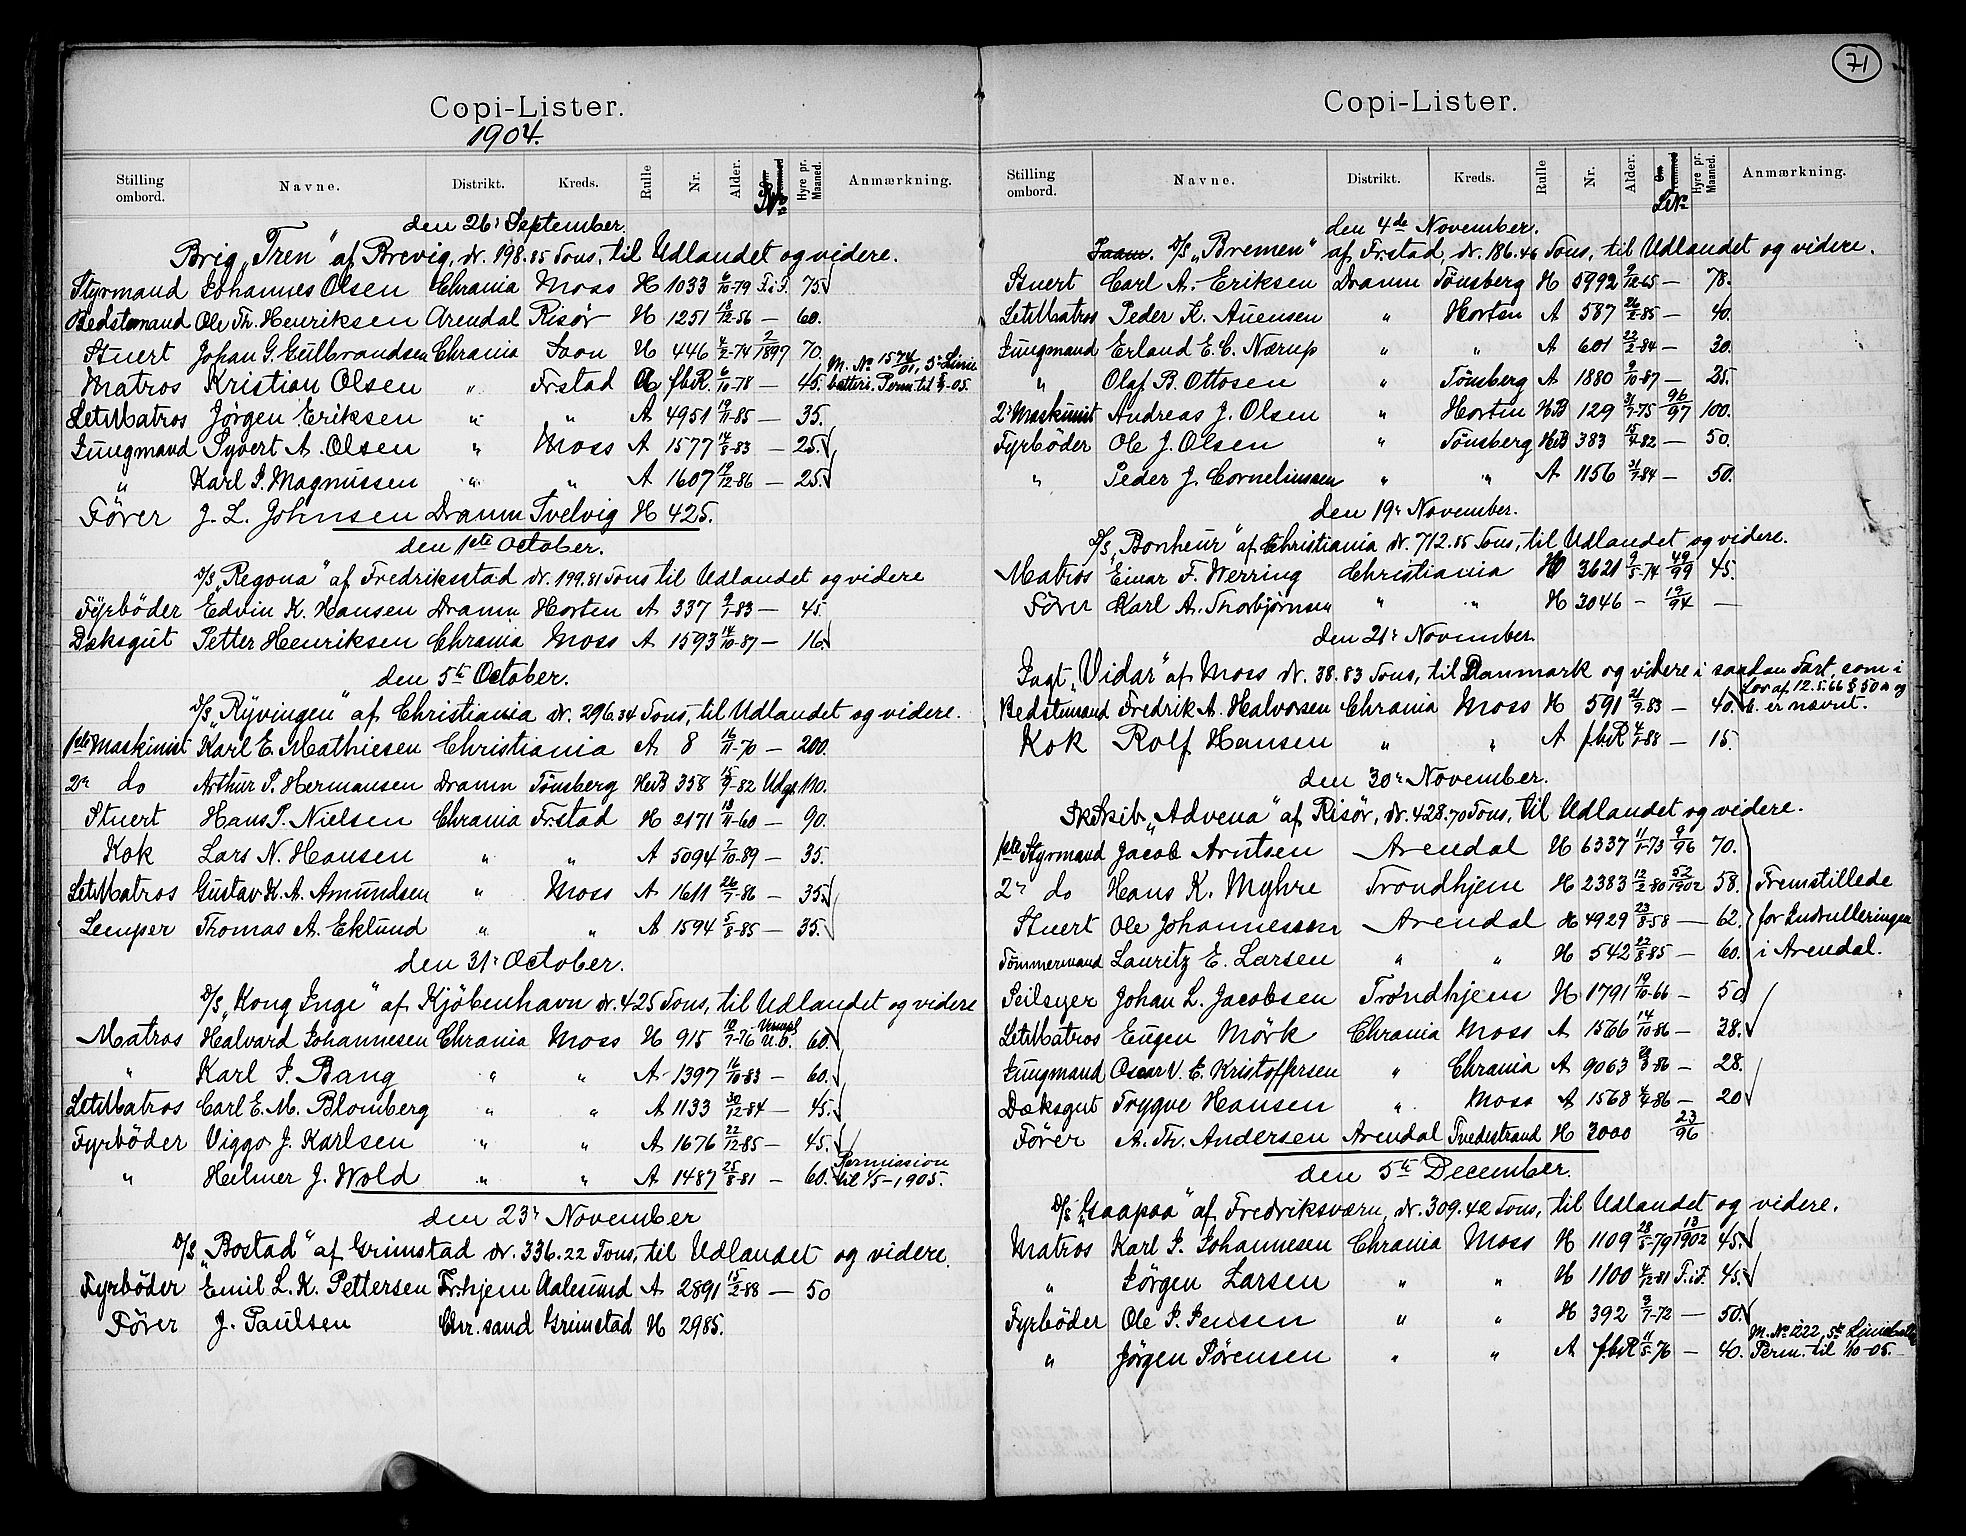 71
Copi-Lister.
1904.
Stilling ombord. Navne. Distrikt. Kreds. Rulle Nr. Alder. Hyre pr. Maaned. Anmærkning.
den 26' September.
Brig „Tren" af Brevig, dr. 198.85 Tons, til Udlandet og videre.
Styrmand Johannes Olsen Chrania Moss H 1033 6/10-79 F.i.F. 75
Bedstemand Ole Th. Henriksen Arendal Risör H 1251 18/12-56 — 60.
Stuert Johan G. Gulbrandsen Chrania Soon H 446 4/2-74 2/1897 70.
Matros Kristian Olsen " Fr.stad A fbR. 6/10-78 — 45. M. No 1574/01, 3' Linie batteri. Perm til
LetMatros Jörgen Eriksen " " A 4951 19/11-85 — 35.
Jungmand Syvert A. Olsen " Moss A 1577 14/8-83 — 25
" Karl S. Magnussen " " A 1607 19/12-86 — 25
Förer J. L. Johnsen Dramn Svelvig H 425.
den 1ste October.
D/S „Regona" af Fredriksstad dr. 199.81 Tons til Udlandet og videre
Fyrböder Edvin K. Hansen Dramn Horten A 337 9/1-83 — 45.
Dæksgut Petter Henriksen Chrania Moss A 1593 14/10-87 — 16.
den 5te October.
D/S „Ryvingen" af Christiania dr. 296.34 Tons, til Udlandet og videre.
1ste Maskinist Karl E. Mathiesen Christiania A 8 16/11-70 — 200.
2' do Arthur S. Hermansen Dramn Tönsberg HB 358 15/9-82 Udg. 110.
Stuert Hans P. Nielsen Chrania Fr.stad H 2171 13/11-60 — 90.
Kok Lars N. Hansen " " A 5094 7/10-89 — 35.
LetMatros Gustav K. A. Amundsen " Moss A 1611 26/7-86 — 35
Lemper Thomas A. Eklund " " A 1594 5/8-85 — 35.
den 31' October.
D/S „Kong Inge" af Kjöbenhavn dr. 425 Tons, til Udlandet og videre
Matros Halvard Johannesen Chrania Moss H 915 10/7-76 U.b. 60
" Karl S. Bang " " A 1397 16/10-83 — 60.
LetMatros Carl E. M. Blomberg " " A 1133 30/12-84 — 45.
Fyrböder Viggo J. Karlsen " " A 1676 22/12-85 — 45.
" Helmer J. Wold " " A 1487 25/8-81 — 60. Permission til 1/5-1905.
den 23' November
D/S „Bostad" af Grimstad dr. 336.22 Tons, til Udlandet og videre.
Fyrböder Emil L. K. Pettersen Tr.hjem Aalesund A 2891 15/2-88 — 50
Förer J. Paulsen Chr.sand Grimstad H 2985.
Copi-Lister.
Stilling ombord. Navne. Distrikt. Kreds. Rulle Nr. Alder. Hyre pr. Maaned. Anmærkning.
den 4de November.
D/S „Bremen" af Fr.stad, dr. 186.46 Tons, til Udlandet og videre.
Stuert Carl A. Eriksen Dramn Tönsberg H 5992 9/12-65 — 78.
LetMatros Peder K. Auensen " Horten A 587 26/2-85 — 40.
Jungmand Erland E. C. Nærup " " A 601 22/2-84 — 30.
" Olaf B. Ottosen " Tönsberg A 1880 9/10-87 — 25.
2' Maskinist Andreas J. Olsen " Horten HB 129 31/7-75 96/97 100.
Fyrböder Ole J. Olsen " Tönsberg HB 383 15/4-82 — 50.
" Peder J. Corneliussen " " A 1156 31/7-84 — 50.
den 19' November.
D/S „Bonheur" af Christiania dr. 712.85 Tons, til Udlandet og videre.
Matros Einar F. Werring Christiania H 3621 9/5-74 49/99 45.
Förer Karl A. Thorbjörnsen " " H 3046 - 19/94 —
den 21' November.
Jagt „Vidar" af Moss dr. 38.83 Tons, til Danmark og videre i saadan Fart, som i Lov af 12.5.66 § 50 a og b. er nævnt.
Bedstemand Fredrik A. Halvorsen Chrania Moss H 591 21/9-83 — 40
Kok Rolf Hansen " " A fbR 4/1-88 — 15.
den 30' November.
Sk.Skib „Advena" af Risör, dr. 428.70 Tons, til Udlandet og videre.
1ste Styrmand Jacob Arntsen Arendal H 6337 11/1-73 9/96 70.
2' do Hans K. Myhre Trondhjem H 2383 12/2-80 52/1902 58. Fremstillede
Stuert Ole Johannessen Arendal H 4929 23/8-58 — 62. for Indrulleringen
Tömmermand Lauritz E. Larsen " " H 542 22/8-85 — 60. i Arendal.
Seilsyer Johan L. Jacobsen Trondhjem H 1791 19/10-66 — 50
LetMatros Eugen Mörk Chrania Moss A 1566 14/10-86 — 38.
Jungmand Oscar V. E. Kristoffersen " Chrania A 9063 29/3-86 — 28.
Dæksgut Trygve Hansen " Moss A 1568 2/4-86 — 20
Förer A. Th. Andersen Arendal Tvedestrand H 3000 23/96
den 5te December.
D/S „Gaapaa" af Fredriksværn, dr. 309.42 Tons, til Udlandet og videre.
Matros Karl J. Johannesen Chrania Moss H 1109 28/5-79 13/1902 45.
" Jörgen Larsen " " H 1100 4/12-81 F.i.F. 45.
Fyrböder Ole S. Jensen " " H 392 9/7-72 — 50.
" Jörgen Sörensen " " A fbR 11/5-76 — 40. M. No 1222, 5te Liniebatt. Perm. til 1/10-05.